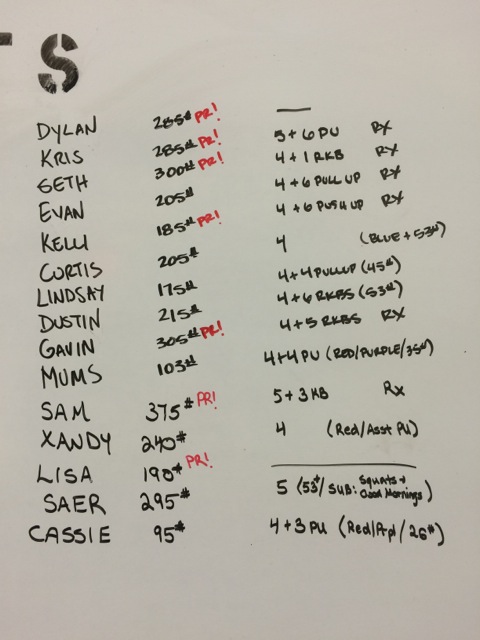 S
DYLAN 285# PR! —
KRIS 285# PR! 5+6 PU RX
SETH 300# PR! 4+1 RKB RX
EVAN 205# 4+6 PULL UP RX
KELLI 185# PR! 4+6 PUSH UP RX
CURTIS 205# 4 (BLUE+53#)
LINDSAY 175# 4+4 PULLUP (45#)
DUSTIN 215# 4+6 RKBS (53#)
GAVIN 305# PR! 4+5 RKBS RX
MUMS 103# 4+4 PU (RED/PURPLE/35#)
SAM 375# PR! 5+3 KB Rx
XANDY 240# 4 (Red/Asst PU)
LISA 190# PR! —
SAER 295# 5 (53#/SUB: Squats + Good Mornings)
CASSIE 95# 4+3 PU (Red/Prpl/26#)